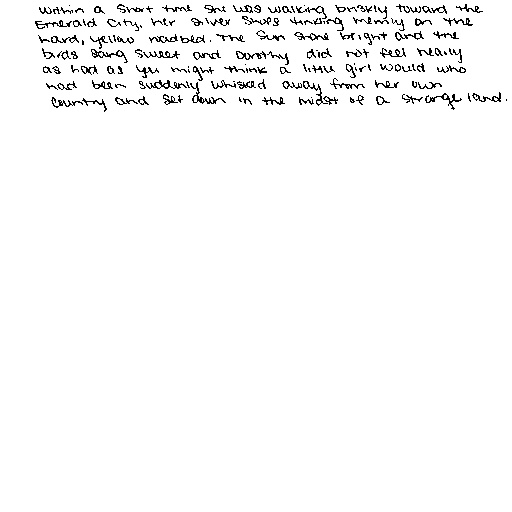 Within a short time she was walking briskly toward the
Emerald City, her Silver Shoes tinkling merrily on the
hard, yellow roadbed. The sun shone bright and the
birds sang sweet and Dorothy did not feel nearly
as bad as you might think a little girl would who
had been suddenly whisked away from her own
country and set down in the midst of a strange land.